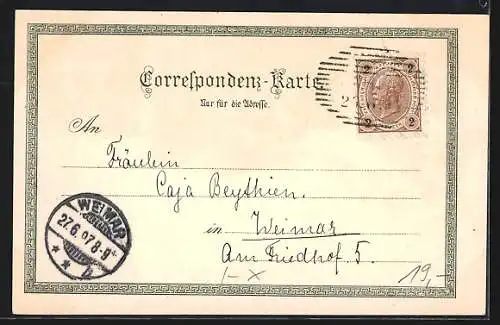 Correspondenz-Karte
Nur für die Adresse.
2 2
2 2
An
Fräulein
Caja Beythien.
in Weimar
Am Friedhof 5.
WEIMAR
27.6.97.8-9+
* * b
19,-